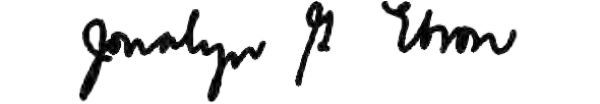 Jonalyn G Ebron